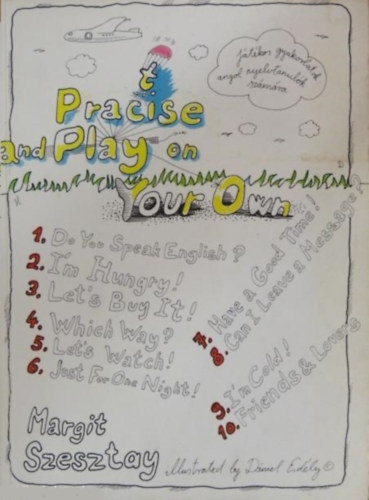 játékos gyakorlatok
angol nyelvtanulók
számára
t
Pracise
and Play on
Your Own
1. Do You Speak English?
2. I'm Hungry!
3. Let's Buy It!
4. Which Way?
5. Let's Watch!
6. Just For One Night!
7. Have a Good Time!
8. Can I Leave a Message?
9. I'm Cold!
10. Friends & Lovers
Margit
Szesztay
Illustrated by Dániel Erdély ©